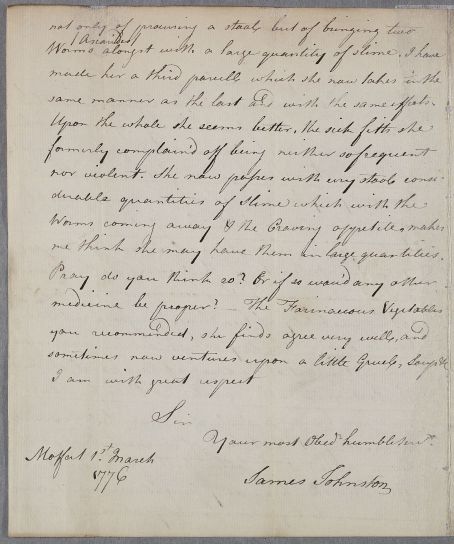 not only of procuring a stool but of bringing two
(Ascarides)
Worms alongst with a large quantity of slime. I have
made her a third parcell which she now takes in the
same manner as the last and with the same effects.
Upon the whole she seems better, the sick fitts she
formerly complain'd off being neither so frequent
nor violent. She now passes with every stool consi-
derable quantities of slime which with the
Worms coming away & the Craving appetite, makes
me think she may have them in large quantities.
Pray do you think so? Or if so wou'd any other
medicine be proper? _ The Farinaceous Vegetables
you recommended, she finds agree very well, and
sometimes now ventures upon a little Gruel, Soup &c
I am with great respect
Sir
Your most Obedt. humble Servt.
Moffat 1st. March
1776
James Johnston